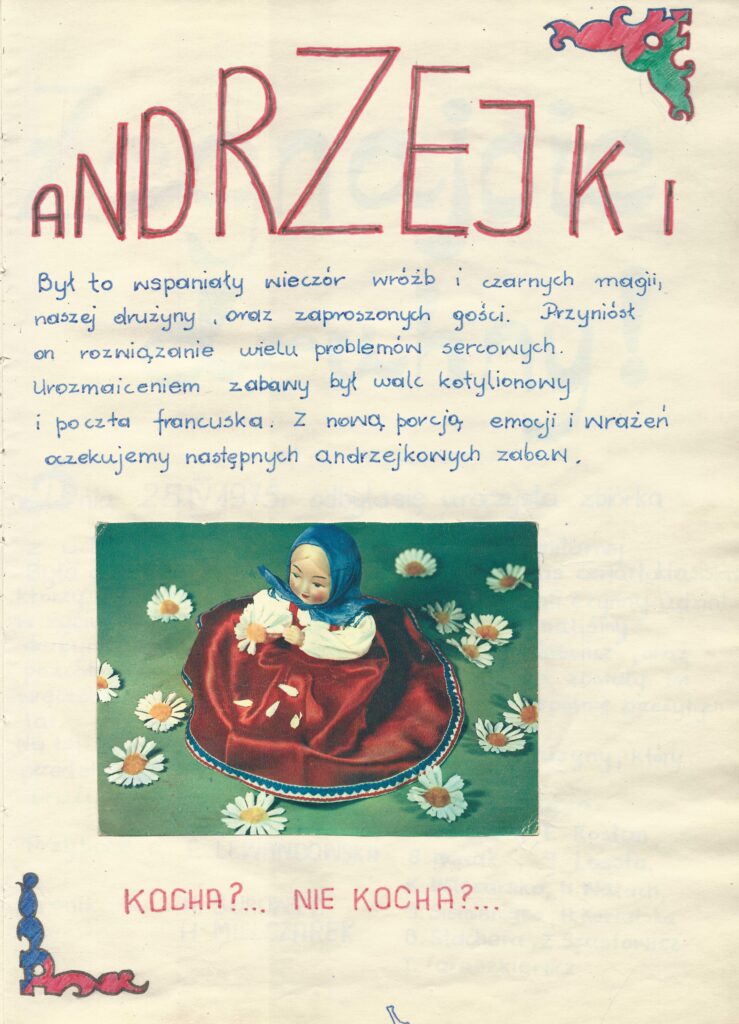 ANDRZEJKI
Był to wspaniały wieczór wróżb i czarnych magii,
naszej drużyny, oraz zaproszonych gości. Przyniósł
on rozwiązanie wielu problemów sercowych.
Urozmaiceniem zabawy był walc kotylionowy
i poczta francuska. Z nową porcją emocji i wrażeń
oczekujemy następnych andrzejkowych zabaw.
KOCHA?... NIE KOCHA?...